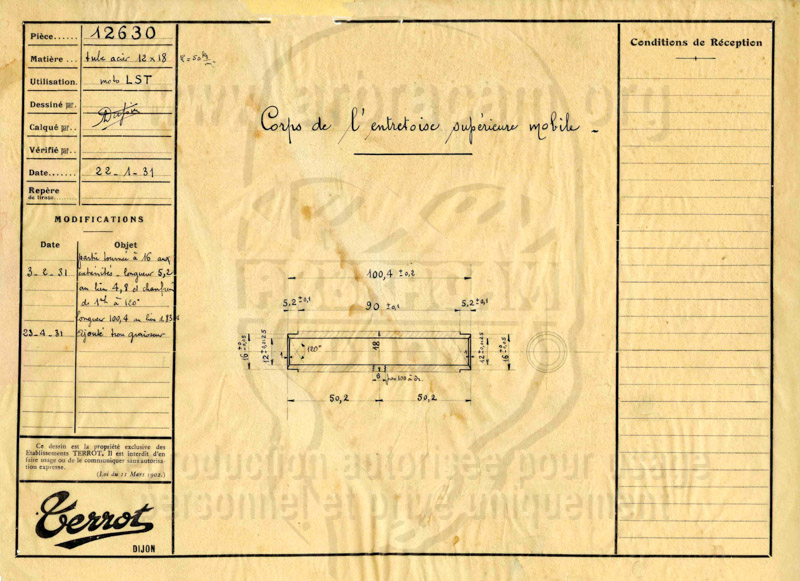 Pièce...... 12630
Matière.... tube acier 12 x 18
Utilisation. moto LST
Dessiné par.
Calqué par..
Vérifié par..
Date....... 22-1-31
Repère
de tirage........
MODIFICATIONS
Date Objet
partie tournée à 16 aux
3-2-31 extrémités - longueur 5,2
au lieu 4,8 et chanfrein
de 1 à 120°
longueur 100,4 au lieu
23-4-31 Ajouté trou graisseur
Ce dessin est la propriété exclusive des
Etablissements TERROT. Il est interdit d'en
faire usage ou de le communiquer sans autorisa-
tion expresse.
(Loi du 11 Mars 1902.)
Terrot
DIJON
Corps de l'entretoise supérieure mobile -
100,4 ± 0,2
5,2 ± 0,1 90 ± 0,1 5,2 ± 0,1
16 12 120° 18 12 16
6
50,2 50,2
Conditions de Réception
www.arbracam.org
Reproduction autorisée pour usage
personnel et privé uniquement